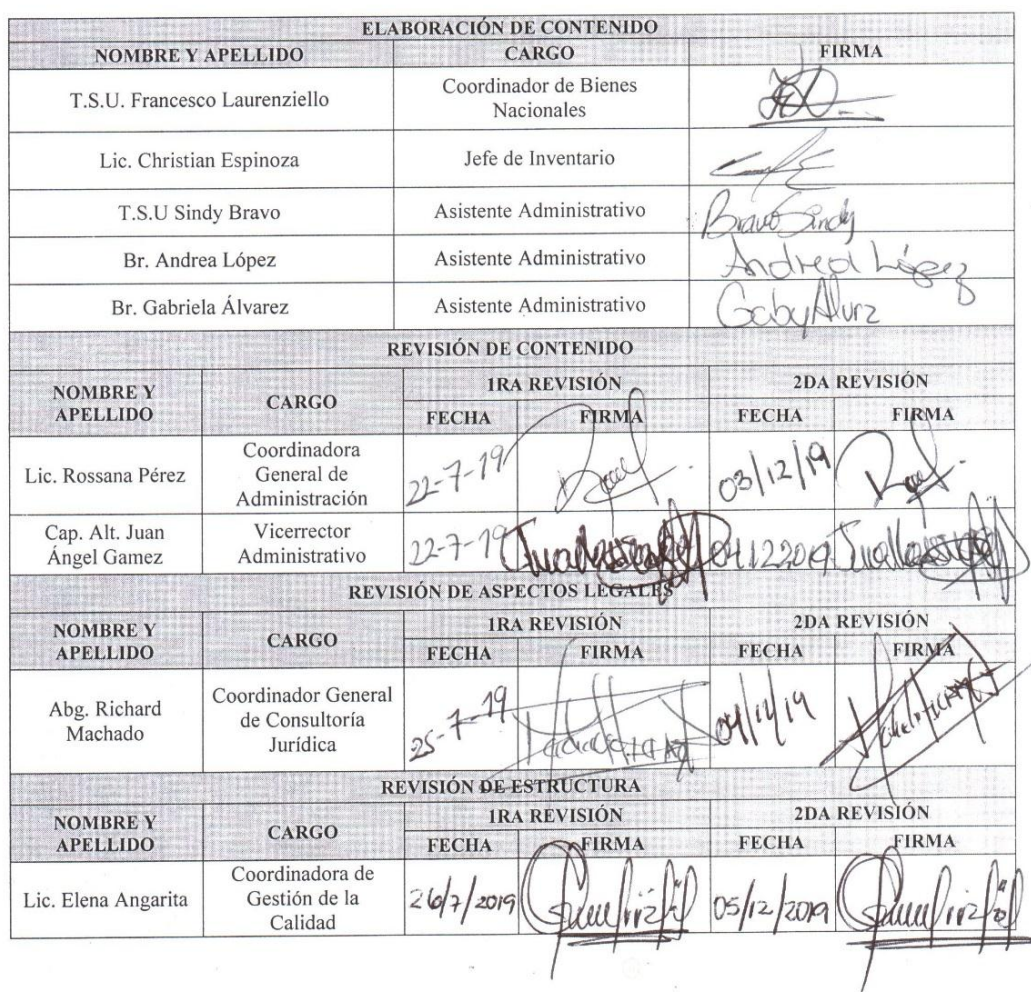 ELABORACIÓN DE CONTENIDO
NOMBRE Y APELLIDO CARGO FIRMA
T.S.U. Francesco Laurenziello Coordinador de Bienes
Nacionales
Lic. Christian Espinoza Jefe de Inventario
T.S.U Sindy Bravo Asistente Administrativo Bravo Sindy
Br. Andrea López Asistente Administrativo Andrea López
Br. Gabriela Álvarez Asistente Administrativo Gaby Alvrz
REVISIÓN DE CONTENIDO
NOMBRE Y
APELLIDO CARGO 1RA REVISIÓN 2DA REVISIÓN
FECHA FIRMA FECHA FIRMA
Lic. Rossana Pérez Coordinadora
General de
Administración 22-7-19 03/12/19
Cap. Alt. Juan
Ángel Gamez Vicerrector
Administrativo 22-7-19 04122019
REVISIÓN DE ASPECTOS LEGALES
NOMBRE Y
APELLIDO CARGO 1RA REVISIÓN 2DA REVISIÓN
FECHA FIRMA FECHA FIRMA
Abg. Richard
Machado Coordinador General
de Consultoría
Jurídica 25-7-19 04/12/19
REVISIÓN DE ESTRUCTURA
NOMBRE Y
APELLIDO CARGO 1RA REVISIÓN 2DA REVISIÓN
FECHA FIRMA FECHA FIRMA
Lic. Elena Angarita Coordinadora de
Gestión de la
Calidad 26/7/2019 05/12/2019